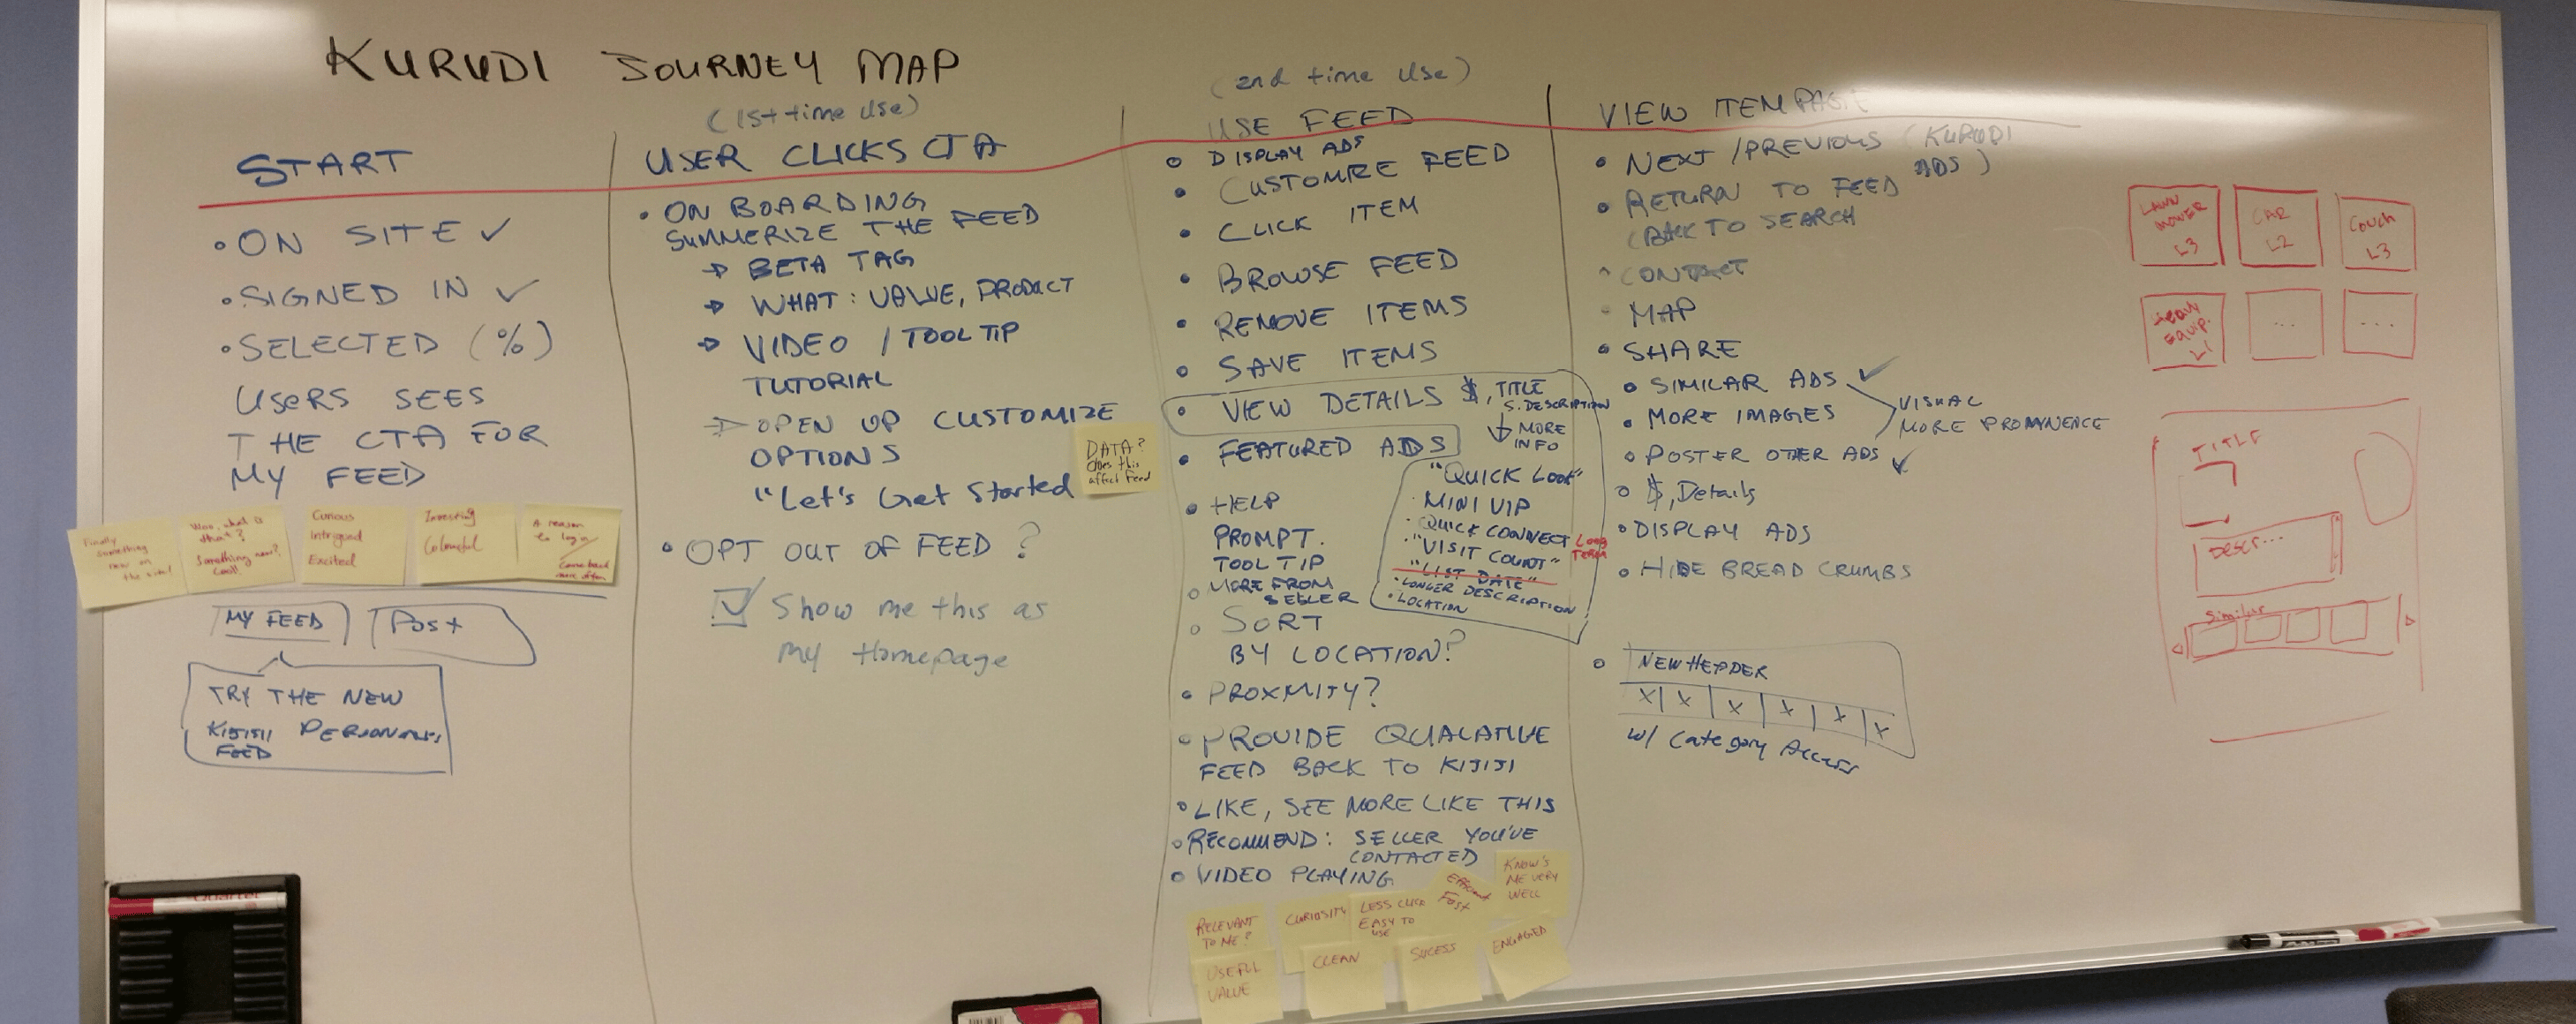 KURUDI JOURNEY MAP
START
• ON SITE ✓
• SIGNED IN ✓
• SELECTED (%)
USERS SEES
THE CTA FOR
MY FEED
Finally
something
new on
the site!
Woo, what is
that?
Something new?
Cool!
Curious
Intrigued
Excited
Colourful
A reason
to login
Come back
more often
MY FEED
Post
TRY THE NEW
KIJIJI
FEED
(1st time Use)
USER CLICKS CTA
• ON BOARDING
SUMMERIZE THE FEED
→ BETA TAG
→ WHAT: VALUE, PRODUCT
→ VIDEO / TOOL TIP
TUTORIAL
→ OPEN UP CUSTOMIZE
OPTIONS
"Let's Get Started
DATA?
does this
affect Feed
• OPT OUT OF FEED ?
☑ Show me this as
my Homepage
(2nd time Use)
USE FEED
• DISPLAY ADS
• CUSTOMIZE FEED
• CLICK ITEM
• BROWSE FEED
• REMOVE ITEMS
• SAVE ITEMS
• VIEW DETAILS $, TITLE
S. DESCRIPTION
↓ MORE
INFO
• FEATURED ADS
"QUICK LOOK"
MINI VIP
• QUICK CONNECT LONG
TERM
• "VISIT COUNT"
"LIST DATE"
• LONGER DESCRIPTION
• LOCATION
• HELP
PROMPT.
TOOL TIP
• MORE FROM
SELLER
• SORT
BY LOCATION?
• PROXMITY?
• PROVIDE QUALATIVE
FEED BACK TO KIJIJI
• LIKE, SEE MORE LIKE THIS
• RECOMMEND: SELLER YOU'VE
CONTACTED
• VIDEO PLAYING
RELEVANT
TO ME?
CURIOSITY
LESS CLICK
EASY TO
USE
Efficient
Fast
KNOW'S
ME VERY
WELL
USEFUL
VALUE
CLEAN
SUCESS
ENGAGED
VIEW ITEM PAGE
• NEXT / PREVIOUS (KURUDI
ADS)
• RETURN TO FEED
(BACK TO SEARCH
• CONTACT
• MAP
• SHARE
• SIMILAR ADS ✓
• MORE IMAGES
VISUAL
MORE PROMINENCE
• POSTER OTHER ADS ✓
• $, Details
• DISPLAY ADS
• HIDE BREAD CRUMBS
• NEW HEADER
X X X X X X
w/ Category Access
LAWN
MOWER
L3
CAR
L2
Couch
L3
Heavy
Equip.
L1
...
...
TITLE
DESCR...
Similar
Quartet